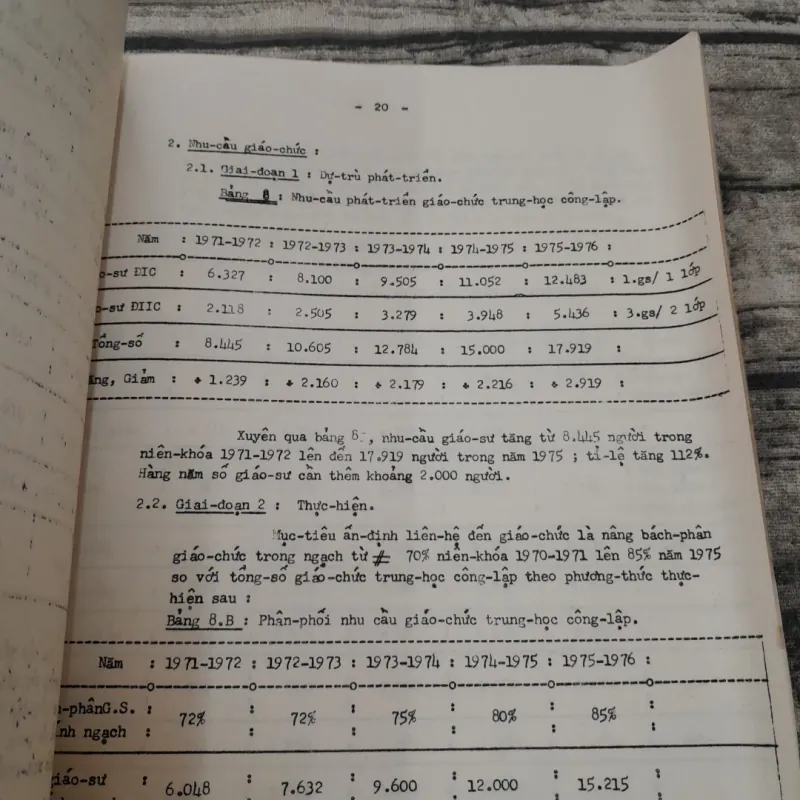 - 20 -
2. Nhu-cầu giáo-chức :
2.1. Giai-đoạn 1 : Dự-trù phát-triển.
Bảng 8 : Nhu-cầu phát-triển giáo-chức trung-học công-lập.
Năm : 1971-1972 : 1972-1973 : 1973-1974 : 1974-1975 : 1975-1976 :
o-sư ĐIC : 6.327 : 8.100 : 9.505 : 11.052 : 12.483 : 1.gs/ 1 lớp
o-sư ĐIIC : 2.118 : 2.505 : 3.279 : 3.948 : 5.436 : 3.gs/ 2 lớp
Tổng-số : 8.445 : 10.605 : 12.784 : 15.000 : 17.919 :
ăng, Giảm : + 1.239 : + 2.160 : + 2.179 : + 2.216 : + 2.919 :
Xuyên qua bảng 8 , nhu-cầu giáo-sư tăng từ 8.445 người trong
niên-khóa 1971-1972 lên đến 17.919 người trong năm 1975 ; tỉ-lệ tăng 112%.
Hàng năm số giáo-sư cần thêm khoảng 2.000 người.
2.2. Giai-đoạn 2 : Thực-hiện.
Mục-tiêu ấn-định liên-hệ đến giáo-chức là nâng bách-phân
giáo-chức trong ngạch từ ≠ 70% niên-khóa 1970-1971 lên 85% năm 1975
so với tổng-số giáo-chức trung-học công-lập theo phương-thức thực-
hiện sau :
Bảng 8.B : Phân-phối nhu cầu giáo-chức trung-học công-lập.
Năm : 1971-1972 : 1972-1973 : 1973-1974 : 1974-1975 : 1975-1976 :
-phânG.S. : : : : : :
nh ngạch : 72% : 72% : 75% : 80% : 85% :
giáo-sư : 6.048 : 7.632 : 9.600 : 12.000 : 15.215 :